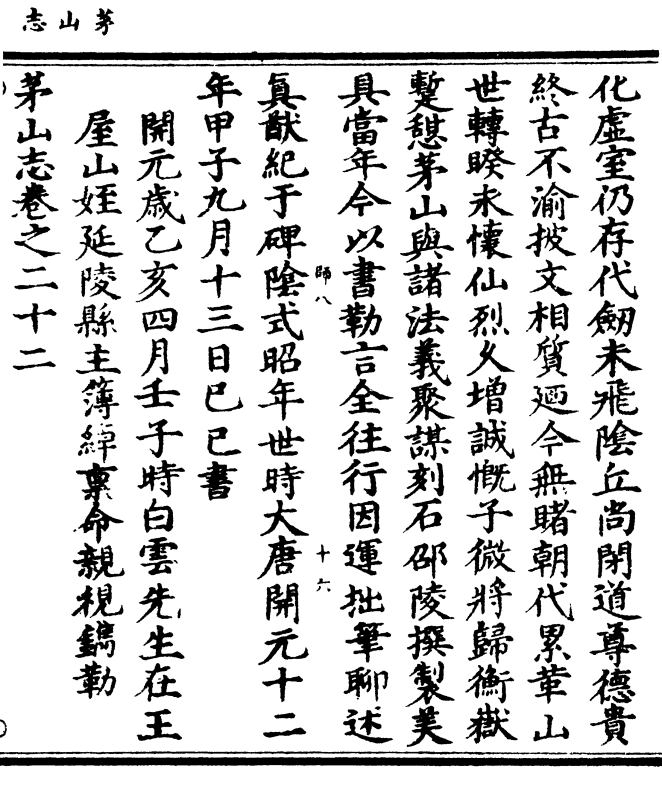 茅山志
化虛室仍存代劒未飛陰丘尚閉道尊德貴
終古不渝披文相質迺今無睹朝代累革山
世轉睽未懷仙烈久增誠慨子微將歸衡嶽
蹔憩茅山與諸法義聚謀刻石邵陵撰製美
具當年今以書勒言全往行因運拙筆聊述
師八
十六
真猷紀于碑陰式昭年世時大唐開元十二
年甲子九月十三日巳巳書
開元歲乙亥四月壬子時白雲先生在王
屋山姪延陵縣主簿綽稟命親視鐫勒
茅山志卷之二十二